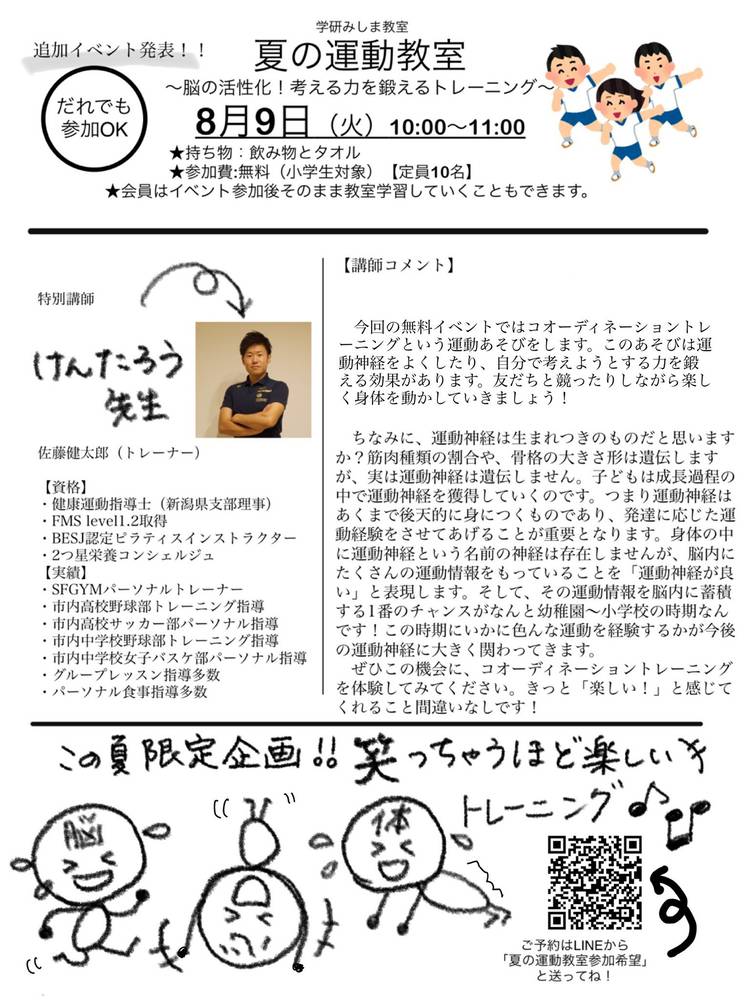 学研みしま教室
追加イベント発表！！
夏の運動教室
だれでも
参加OK
〜脳の活性化！考える力を鍛えるトレーニング〜
8月9日（火）10:00〜11:00
★持ち物：飲み物とタオル
★参加費:無料（小学生対象）【定員10名】
★会員はイベント参加後そのまま教室学習していくこともできます。
特別講師
けんたろう
先生
佐藤健太郎（トレーナー）
【資格】
・健康運動指導士（新潟県支部理事）
・FMS level1.2取得
・BESJ認定ピラティスインストラクター
・2つ星栄養コンシェルジュ
【実績】
・SFGYMパーソナルトレーナー
・市内高校野球部トレーニング指導
・市内高校サッカー部パーソナル指導
・市内中学校野球部トレーニング指導
・市内中学校女子バスケ部パーソナル指導
・グループレッスン指導多数
・パーソナル食事指導多数
【講師コメント】
今回の無料イベントではコオーディネーショントレ
ーニングという運動あそびをします。このあそびは運
動神経をよくしたり、自分で考えようとする力を鍛
える効果があります。友だちと競ったりしながら楽し
く身体を動かしていきましょう！
ちなみに、運動神経は生まれつきのものだと思います
か？筋肉種類の割合や、骨格の大きさ形は遺伝します
が、実は運動神経は遺伝しません。子どもは成長過程の
中で運動神経を獲得していくのです。つまり運動神経は
あくまで後天的に身につくものであり、発達に応じた運
動経験をさせてあげることが重要となります。身体の中
に運動神経という名前の神経は存在しませんが、脳内に
たくさんの運動情報をもっていることを「運動神経が良
い」と表現します。そして、その運動情報を脳内に蓄積
する1番のチャンスがなんと幼稚園〜小学校の時期なん
です！この時期にいかに色んな運動を経験するかが今後
の運動神経に大きく関わってきます。
ぜひこの機会に、コオーディネーショントレーニング
を体験してみてください。きっと「楽しい！」と感じて
くれること間違いなしです！
この夏限定企画!! 笑っちゃうほど楽しい
トレーニング♪♫
脳
体
ご予約はLINEから
「夏の運動教室参加希望」
と送ってね！